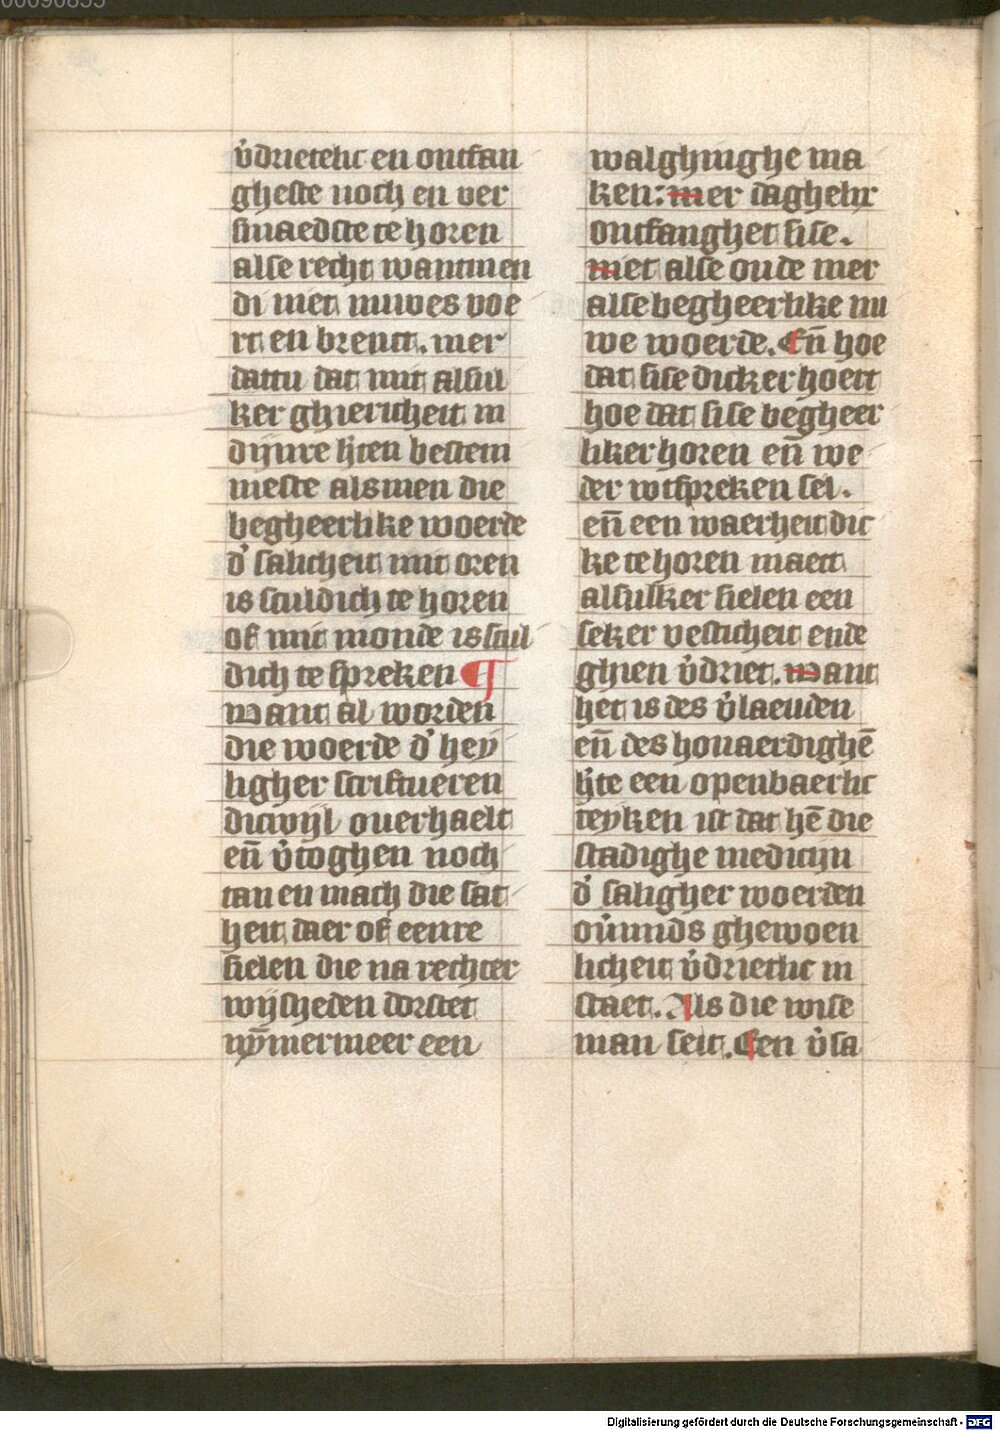 v̉drietelic en ontfan
gheste noch en ver
smaedste te horen
alse recht want men
di niet nuwes voe
rt en brenct. mer
dattu dat mit alsul
ker ghiericheit in
dijnre h̉ten bestem
meste alsmen die
begheerlike woerde
d̉ salicheit mit oren
is sculdich te horen
of mit monde is scul
dich te spreken ¶
want al worden
die woerde d̉ hey
ligher scriftueren
dicwijl ouerhaelt
en̄ v̉toghen noch
tan en mach die sat
heit daer of eenre
sielen die na rechter
wijsheden dorstet
nȳmermeer een
walghinghe ma
ken: mer daghelix
ontfanghet sise.
niet alse oude mer
alse begheerlike nu
we woerde. En̄ hoe
dat sise dicker hoert
hoe dat sise begheer
liker horen en̄ we
der wtspreken sel.
en̄ een waerheit dic
ke te horen maect
alsulker sielen een
seker vesticheit ende
ghien v̉driet. want
het is des v̉laeuden
en̄ des houaerdighē
h̉te een openbaerlic
teyken ist dat hē die
stadighe medicijn
d̉ saligher woerden
oủmids ghewoen
licheit v̉drietlic in
staet. Als die wise
man seit. Een v̉sa
00090855
Digitalisierung gefördert durch die Deutsche Forschungsgemeinschaft - DFG